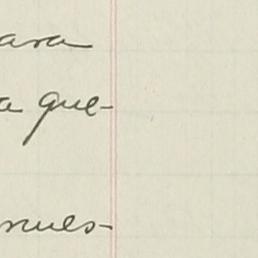 ara
a que-
nues-